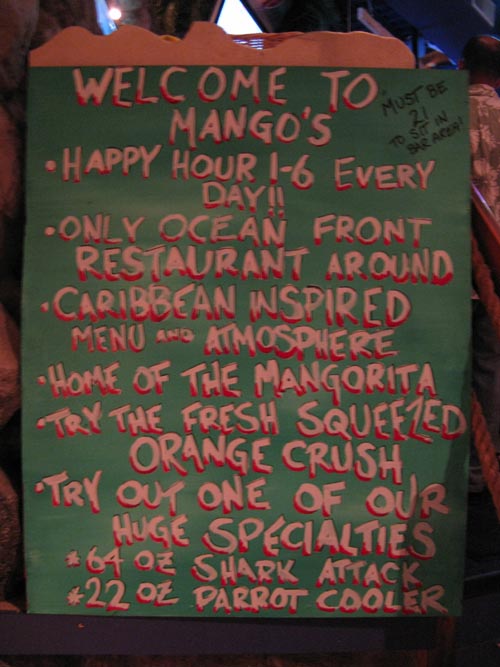 WELCOME TO
MANGO'S
MUST BE
21
TO SIT IN
BAR AREA!
• HAPPY HOUR 1-6 EVERY
DAY!!
• ONLY OCEAN FRONT
RESTAURANT AROUND
• CARIBBEAN INSPIRED
MENU AND ATMOSPHERE
• HOME OF THE MANGORITA
• TRY THE FRESH SQUEEZED
ORANGE CRUSH
• TRY OUT ONE OF OUR
HUGE SPECIALTIES
* 64 OZ SHARK ATTACK
* 22 OZ PARROT COOLER